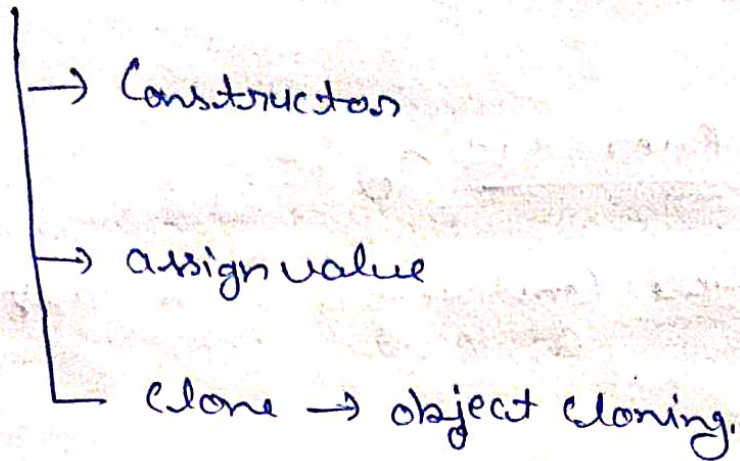 → Constructor
→ assign value
clone → object cloning.